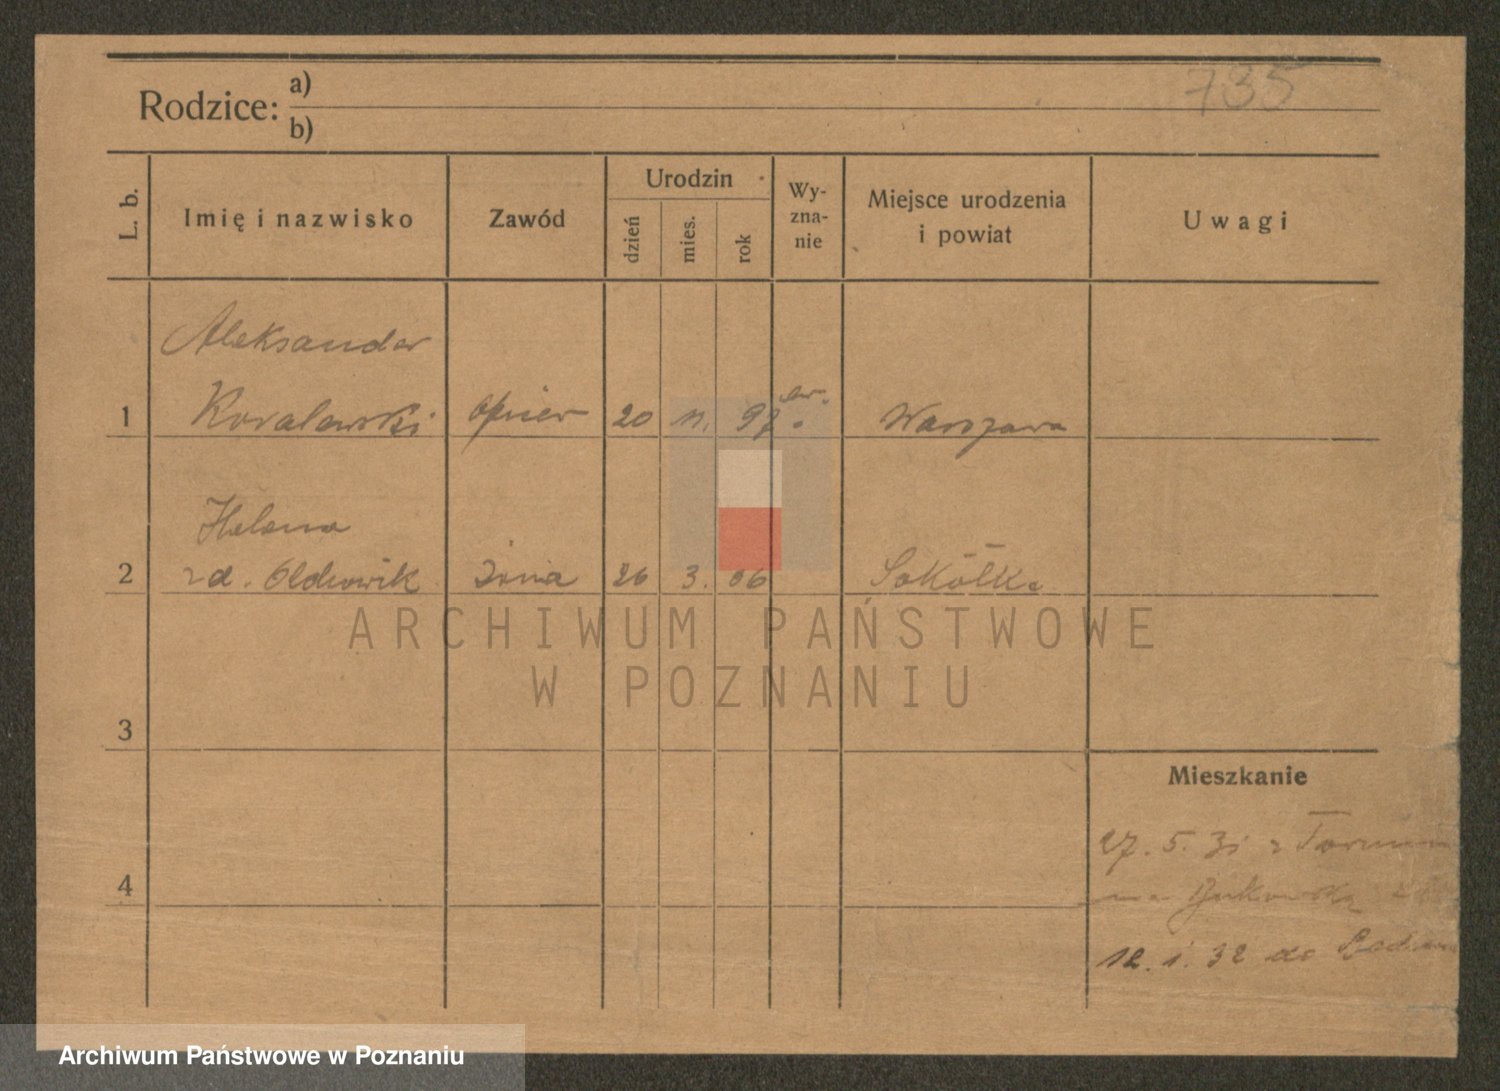 735
Rodzice: a)
b)
L. b.
Imię i nazwisko
Zawód
Urodzin
dzień
mies.
rok
Wy-
zna-
nie
Miejsce urodzenia
i powiat
Uwagi
Aleksander
1 Kowalewski oficer 20 11. 97. Warszawa
Helena
2 zd. Oldrowik żona 26 3. 06 Sokółka
ARCHIWUM PAŃSTWOWE
W POZNANIU
3
Mieszkanie
27. 5. 31 z
4
na Bukowską
12. 1. 32 do
Archiwum Państwowe w Poznaniu